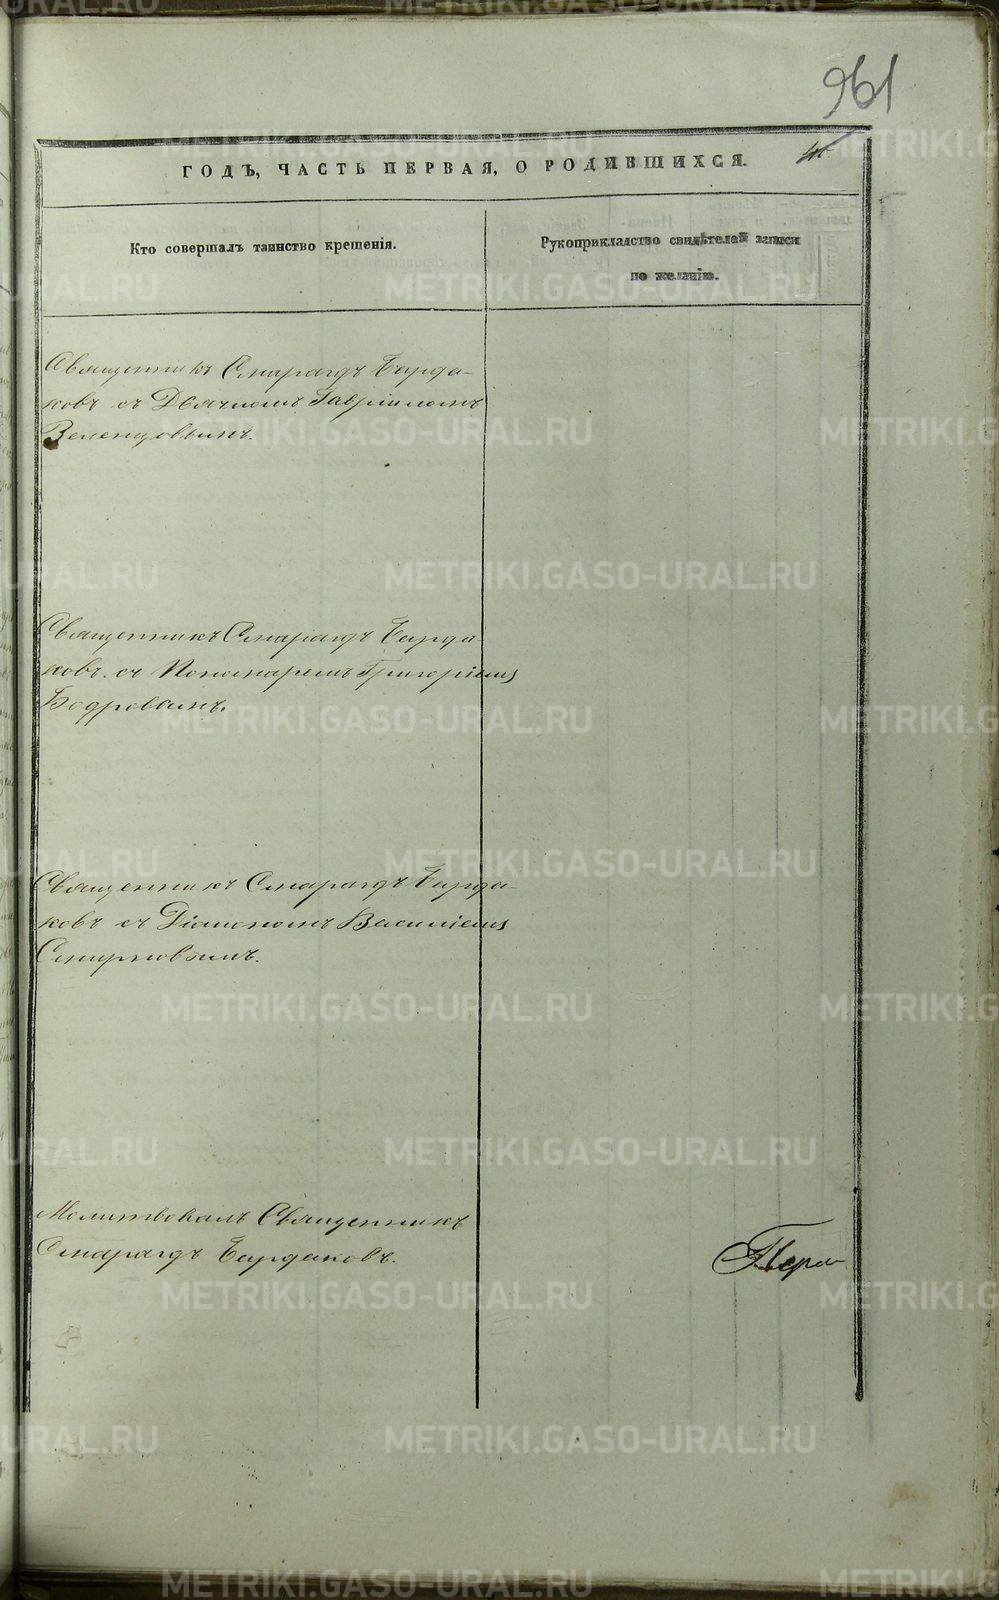 961
ГОДЪ, ЧАСТЬ ПЕРВАЯ, О РОДИВШИХСЯ.
Кто совершалъ таинство крещенія.
Рукоприкладство свидѣтелей записи
по желанію.
Священникъ Смарагдъ Бирда-
ковъ съ Дьячкомъ Гавріиломъ
Зеленцовымъ.
Священникъ Смарагдъ Бирда
ковъ съ Пономаремъ Григоріемъ
Бодровымъ.
Священникъ Смарагдъ Бирда-
ковъ съ Діакономъ Василіемъ
Смирновымъ.
Молитвовалъ Священникъ
Смарагдъ Бирдаковъ.
METRIKI.GASO-URAL.RU